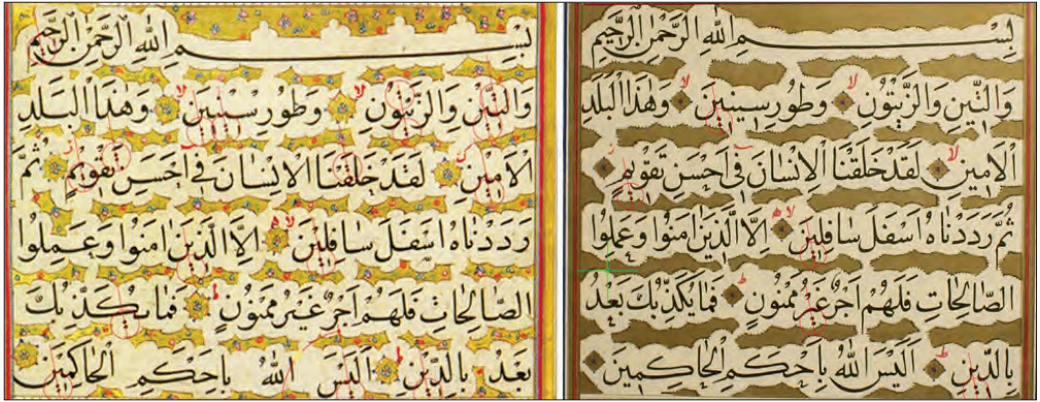 بِسْمِ اللّٰهِ الرَّحْمٰنِ الرَّحِيمِ
وَالتِّينِ وَالزَّيْتُونِ ۙ وَطُورِ سِينِينَ ۙ وَهٰذَا الْبَلَدِ
الْاَمِينِ ۙ لَقَدْ خَلَقْنَا الْاِنْسَانَ فِى اَحْسَنِ تَقْوِيمٍ
ثُمَّ رَدَدْنَاهُ اَسْفَلَ سَافِلِينَ ۙ اِلَّا الَّذِينَ اٰمَنُوا وَعَمِلُوا
الصَّالِحَاتِ فَلَهُمْ اَجْرٌ غَيْرُ مَمْنُونٍ ۜ فَمَا يُكَذِّبُكَ بَعْدُ
بِالدِّينِ ۜ اَلَيْسَ اللّٰهُ بِاَحْكَمِ الْحَاكِمِينَ
بِسْمِ اللّٰهِ الرَّحْمٰنِ الرَّحِيمِ
وَالتِّينِ وَالزَّيْتُونِ ۙ وَطُورِ سِينِينَ ۙ وَهٰذَا الْبَلَدِ
الْاَمِينِ ۙ لَقَدْ خَلَقْنَا الْاِنْسَانَ فِى اَحْسَنِ تَقْوِيمٍ ثُمَّ
رَدَدْنَاهُ اَسْفَلَ سَافِلِينَ ۙ اِلَّا الَّذِينَ اٰمَنُوا وَعَمِلُوا
الصَّالِحَاتِ فَلَهُمْ اَجْرٌ غَيْرُ مَمْنُونٍ فَمَا يُكَذِّبُكَ
بَعْدُ بِالدِّينِ اَلَيْسَ اللّٰهُ بِاَحْكَمِ الْحَاكِمِينَ